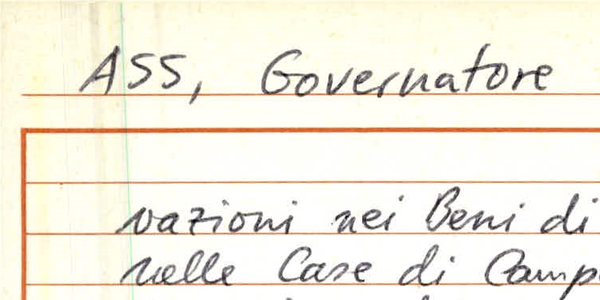 ASS, Governatore
vazioni nei Beni di
nelle Case di Camp